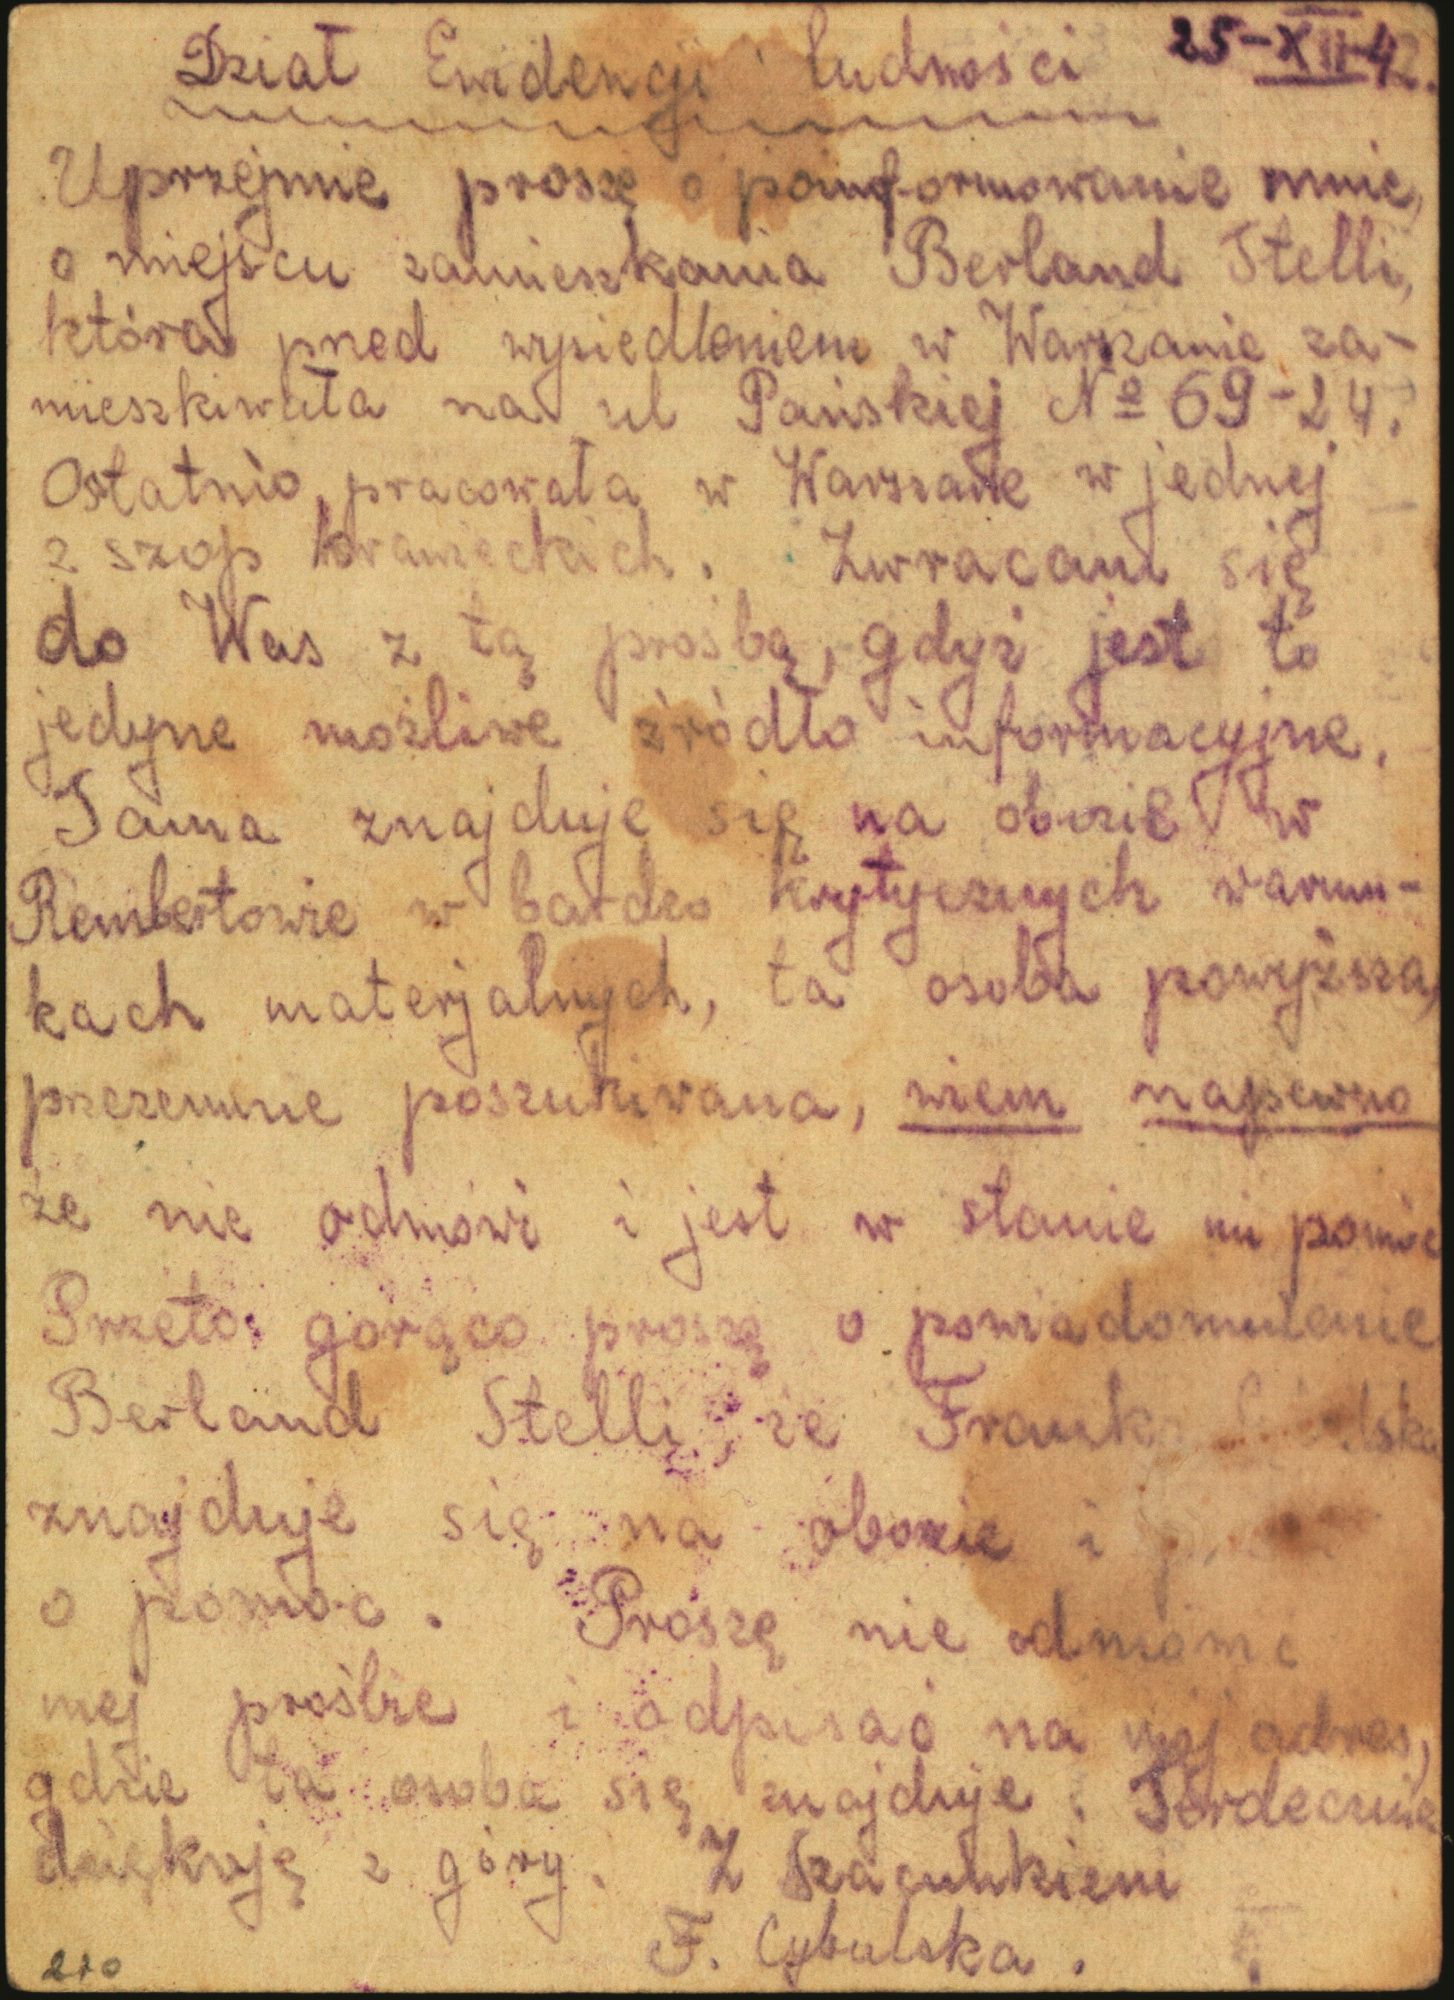 25-XII-42.
Dział Ewidencji ludności
Uprzejmie proszę o poinformowanie mnie,
o miejscu zamieszkania Berland Stelli,
która pred wysiedleniem w Warszawie za-
mieszkiwała na ul Pańskiej № 69-24.
Ostatnio pracowała w Warszawie w jednej
z szop krawieckich. Zwracam się
do Was z tą prośbą, gdyż jest to
jedyne możliwe źródło informacyjne.
Sama znajduję się na obozie w
Rembertowie w bardzo krytycznych warun-
kach materjalnych, ta osoba powyższa,
przezemnie poszukiwana, wiem napewno
że nie odmówi i jest w stanie mi pomóc
Przeto gorąco proszę o powiadomienie
Berland Stelli, że
znajduje się na obozie i
o pomoc. Proszę nie
mej prośbie i odpisać na mój adres,
gdzie ta osoba się znajduje. Serdecznie
dziękuję z góry. Z szacunkiem
F. Cybulska.
210